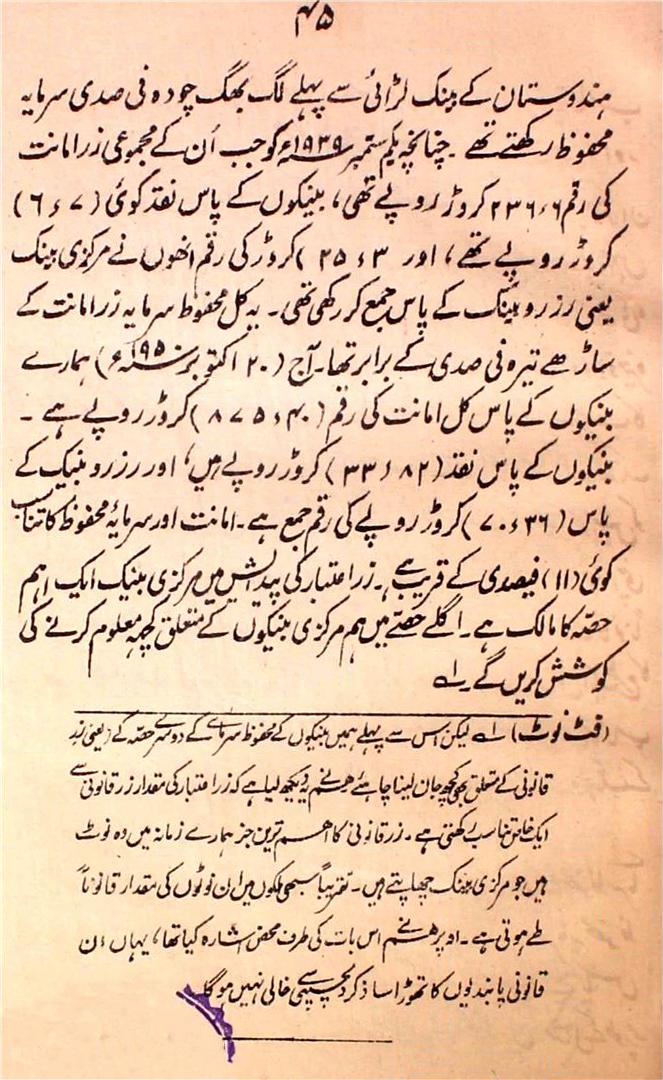 ۴۵
ہندوستان کے بینک لڑائی سے پہلے لگ بھگ چودہ فی صدی سرمایہ
محفوظ رکھتے تھے ۔ چنانچہ یکم ستمبر ۱۹۳۹ء کو جب اُن کے مجموعی زر امانت
کی رقم ۲۳۶٫۶ کروڑ روپے تھی، بینکوں کے پاس نقد کوئی (۶٫۷)
کروڑ روپے تھے، اور ۲۵٫۳) کروڑ کی رقم انھوں نے مرکزی بینک
یعنی رزرو بینک کے پاس جمع کر رکھی تھی ۔ یہ کل محفوظ سرمایہ زر امانت کے
ساڑھے تیرہ فی صدی کے برابر تھا ۔ آج (۲۰ اکتوبر ۱۹۵۰ء) ہمارے
بینکوں کے پاس کل امانت کی رقم (۸۷۵٫۴۰) کروڑ روپے ہے ۔
بینکوں کے پاس نقد (۳۳٫۸۲) کروڑ روپے ہیں، اور رزرو بینک کے
پاس (۷۰٫۳۶) کروڑ روپے کی رقم جمع ہے ۔ امانت اور سرمایۂ محفوظ کا تناسب
کوئی (۱۱) فیصدی کے قریب ہے ۔ زر اعتبار کی پیدائش میں مرکزی بینک ایک اہم
حصّہ کا مالک ہے ۔ اگلے حصّے میں ہم مرکزی بینکوں کے متعلق کچھ معلوم کرنے کی
کوشش کریں گے ۔ ۱ے
(فٹ نوٹ) ۱ے لیکن اس سے پہلے ہمیں بینکوں کے محفوظ سرمائے کے دوسرے حصّہ کے (یعنی زر
قانونی کے متعلق بھی کچھ جان لینا چاہئے ہم نے یہ دیکھ لیا ہے کہ زر اعتبار کی مقدار زر قانونی سے
ایک خاص تناسب رکھتی ہے ۔ زر قانونی کا اہم ترین جز ہمارے زمانہ میں وہ نوٹ
ہیں جو مرکزی بینک چھاپتے ہیں ۔ تقریباً سبھی ملکوں میں ان نوٹوں کی مقدار قانوناً
طے ہوتی ہے ۔ اوپر ہم نے اس بات کی طرف محض اشارہ کیا تھا، یہاں ان
قانونی پابندیوں کا تھوڑا سا ذکر دلچسپی سے خالی نہیں ہوگا ۔